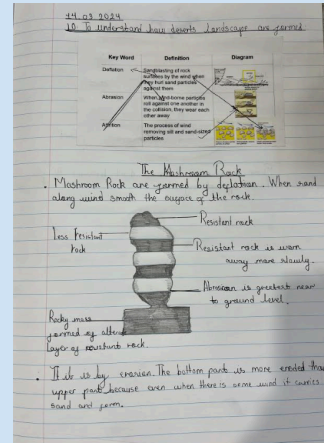 14.03.2024
LO: To understand how deserts landscape are formed.
Key Word Definition Diagram
Deflation Sandblasting of rock
surfaces by the wind when
they hurl sand particles
against them
Abrasion When wind-borne particles
roll against one another in
the collision, they wear each
other away
Attrition The process of wind
removing silt and sand-sized
particles.
The Mushroom Rock
• Mushroom Rock are formed by deflation. When sand
along wind smooth the surface of the rock.
Resistant rock
Less Resistant
rock
Resistant rock is worn
away more slowly.
Abrasion is greatest near
to ground level.
Rocky mass
formed of
layer of resistant rock.
• It is by erosion. The bottom part is more eroded than
upper part because even when there is some wind it carries
sand and form.